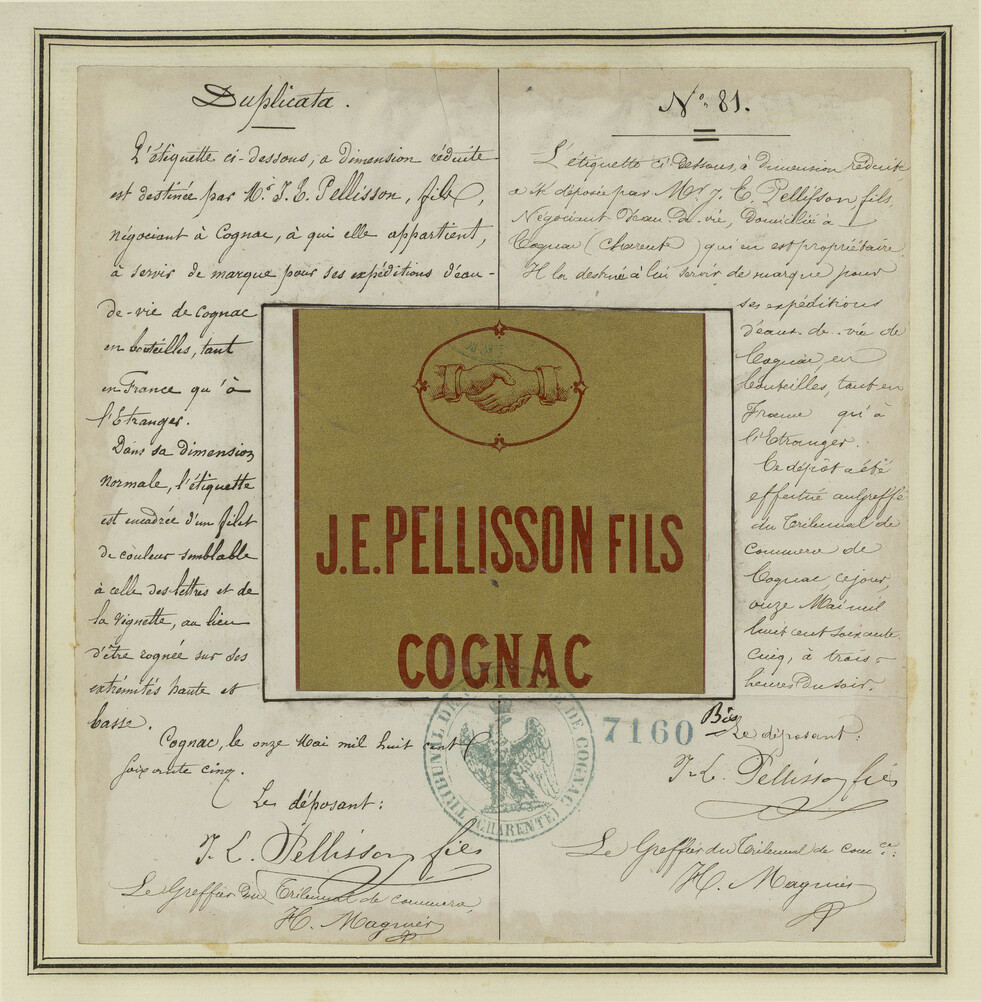 Duplicata.
L'étiquette ci-dessous, a dimension réduite
est destinée par Mr. J. E. Pellisson, fils,
négociant à Cognac, à qui elle appartient,
à servir de marque pour ses expéditions d'eau-
de-vie de Cognac
en bouteilles, tant
en France qu'à
l'Etranger.
Dans sa dimension
normale, l'étiquette
est encadrée d'un filet
de couleur semblable
à celle des lettres et de
la vignette, au lieu
d'être rognée sur ses
extrémités haute et
basse.
Cognac, le onze Mai mil huit cent
soixante cinq.
Le déposant:
J. E. Pellisson fils
Le Greffier du Tribunal de commerce,
H. Magnier
No. 81.
L'étiquette ci-dessous, à dimension réduite
a été déposée par Mr. J. E. Pellisson fils,
Négociant d'eau-de-vie, Domicilié à
Cognac (charente) qui en est propriétaire
Il la destine à lui servir de marque pour
ses expéditions
d'eaux-de-vie de
Cognac, en
bouteilles, tant en
France qu'à
l'Etranger.
Ce dépôt a été
effectué au greffe
du Tribunal de
commerce de
Cognac, ce jour,
onze Mai mil
huit cent soixante
cinq, à trois
heures du soir.
Le déposant:
J. E. Pellisson fils
Le Greffier du Tribunal de comce:
H. Magnier
J.E. PELLISSON FILS
COGNAC
7160 Bis
TRIBUNAL DE COMMERCE DE COGNAC
(CHARENTE)